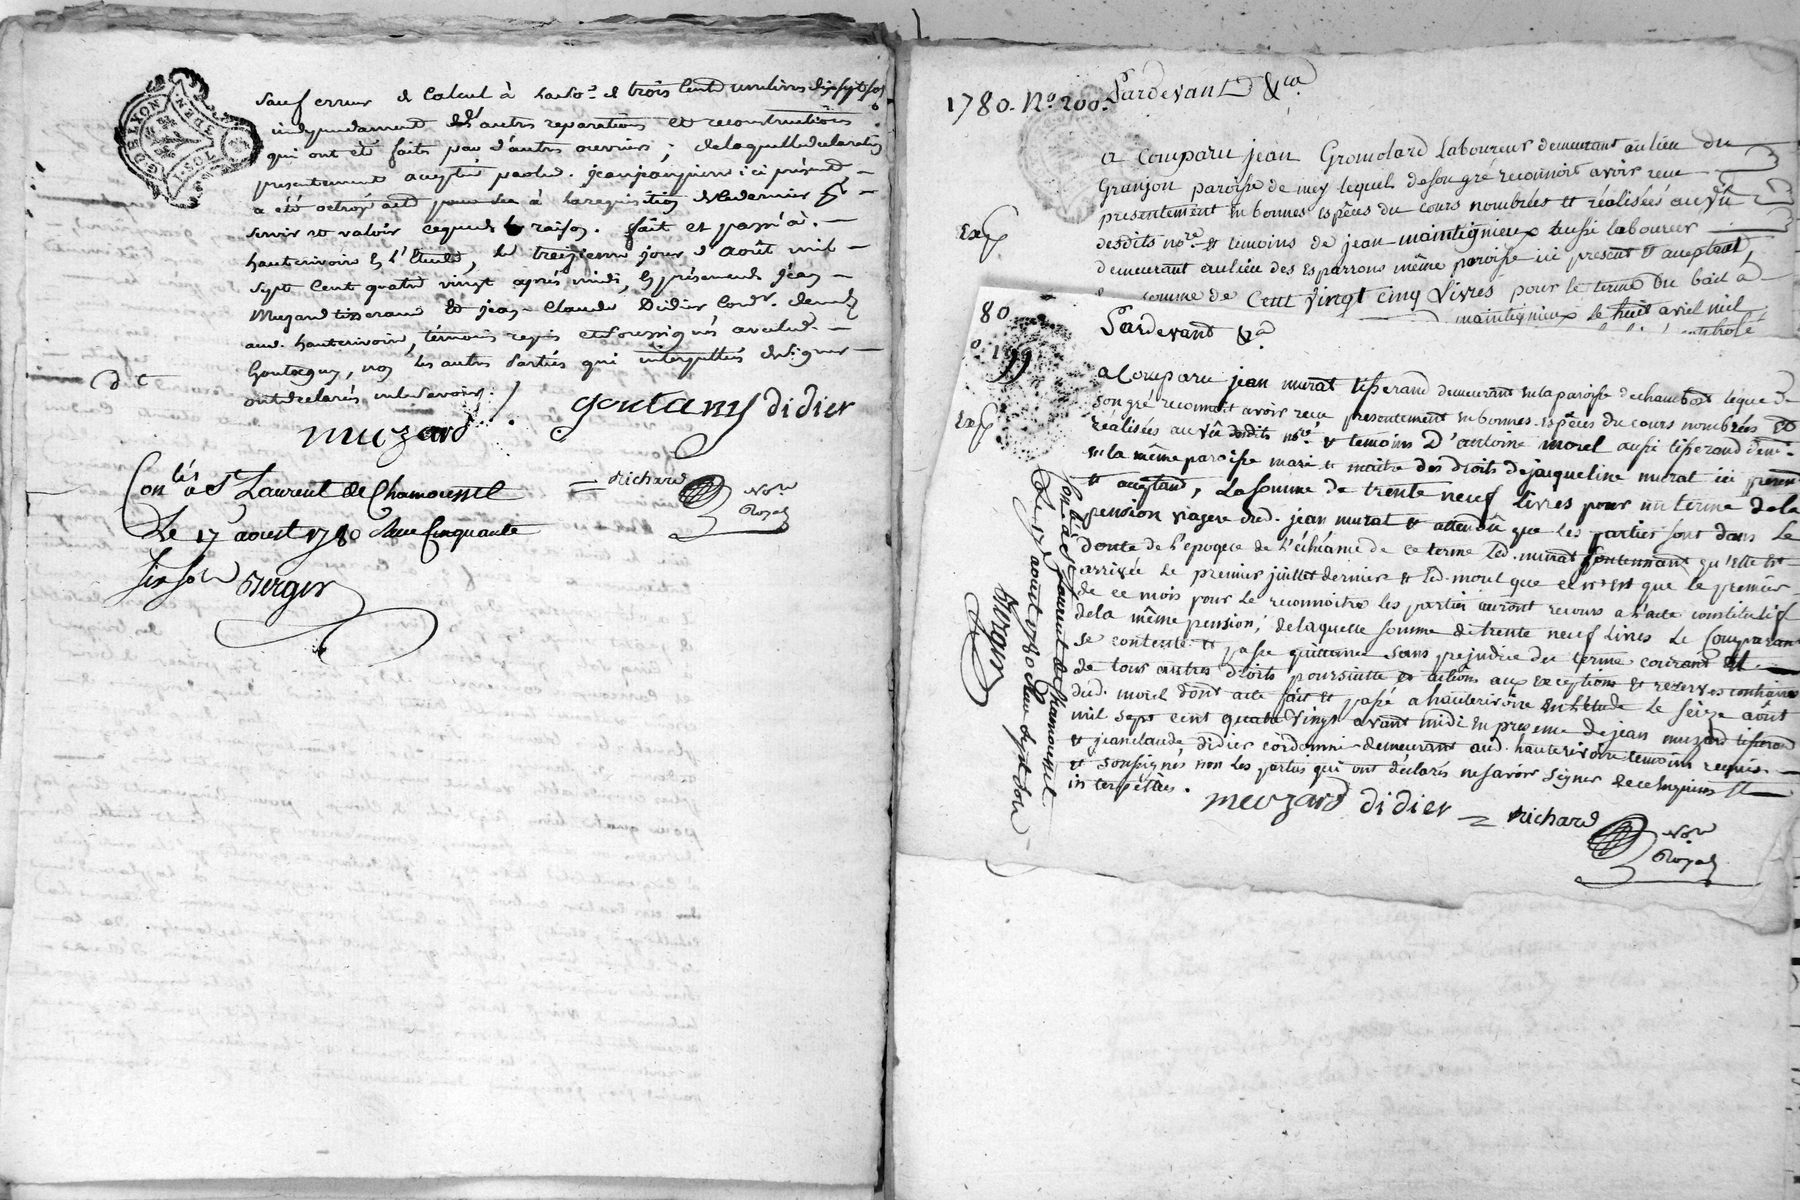 GÑR LYON
3 DEN
I. SOL
sauf erreur de calcul à la so.e de trois cent un livres dix sept sols
independament d'autres reparations et reconstructions
qui ont été faits par d'autres ouvriers; de laquelle declaration
presentement acceptée par led. jean jeanjean ici présent
a été octroyé acte à la requisition de ce dernier pr
servir et valoir ce que de raison. fait et passé à
hauterivoire en l'étude, le treizieme jour d'août mil
sept cent quatre vingt après midi, en présence de jean
Muzard tisserand et jean-Claude Didier cordr. demt
aud. hauterivoire, témoins requis et soussignés avec led.
Goutagny, non les autres Parties qui interpellées de signer
ont declarés ne le savoir.
goutany didier
muzard
richard
Nore
Royal
Conlé à St Laurent de Chamousset
Le 17 aoust 1780 Reçu cinquante
six sols Berger
1780. No. 200.
Pardevant &ca
a comparu jean Gromolard Laboureur demeurant au lieu du
Granjon paroisse de mey lequel de son gré reconnoit avoir reçu
presentement en bonnes espèces du cours nombrées et réalisées au vû
desdits nore. et temoins de jean maintigneux aussi laboureur
Exp.
demeurant au lieu des Esparrons même paroisse ici present et acceptant,
somme de Cent Vingt cinq Livres pour le terme du bail à
maintigneux le huit avril mil
contrôlé
80
o. 199
Pardevant &a
Exp.
a Comparu jean murat tisserand demeurant en la paroisse de chambost lequel de
son gré reconnoit avoir reçu presentement en bonnes espèces du cours nombrées et
réalisées au vû desdits nore. et temoins D'antoine morel aussi tisserand demt.
en la même paroisse mari et maitre des droits de jacqueline murat ici present
et acceptant, La somme de trente neuf Livres pour un terme de la
pension viagere dud. jean murat et attendû que les parties sont dans le
doute de l'epoque de l'échéance de ce terme led. murat soutennant qu'elle est
arrivée le premier juillet dernier et led. morel que ce n'est que le premier
de ce mois pour le reconnoitre les parties auront recours a l'acte constitutif
de la même pension; de laquelle somme de trente neuf Livres le Comparant
se contente et passe quittance sans prejudice du terme courant et
de tous autres droits poursuitte et actions aux exceptions et reserves contraires
dud. morel dont acte fait et passé a hauterivoire en l'étude le seize août
mil sept cent quatre Vingt avant midi en presence de jean muzard tisserand
et jean claude didier cordonnier demeurant aud. hauterivoire temoins requis
et soussignés non les parties qui ont déclarés ne savoir signer de ce enquis et
interpellées.
muzard didier
richard
Nore
Royal
Conlé à St Laurent de Chamousset
Le 17 aoust 1780 Reçu sept sols
Berger